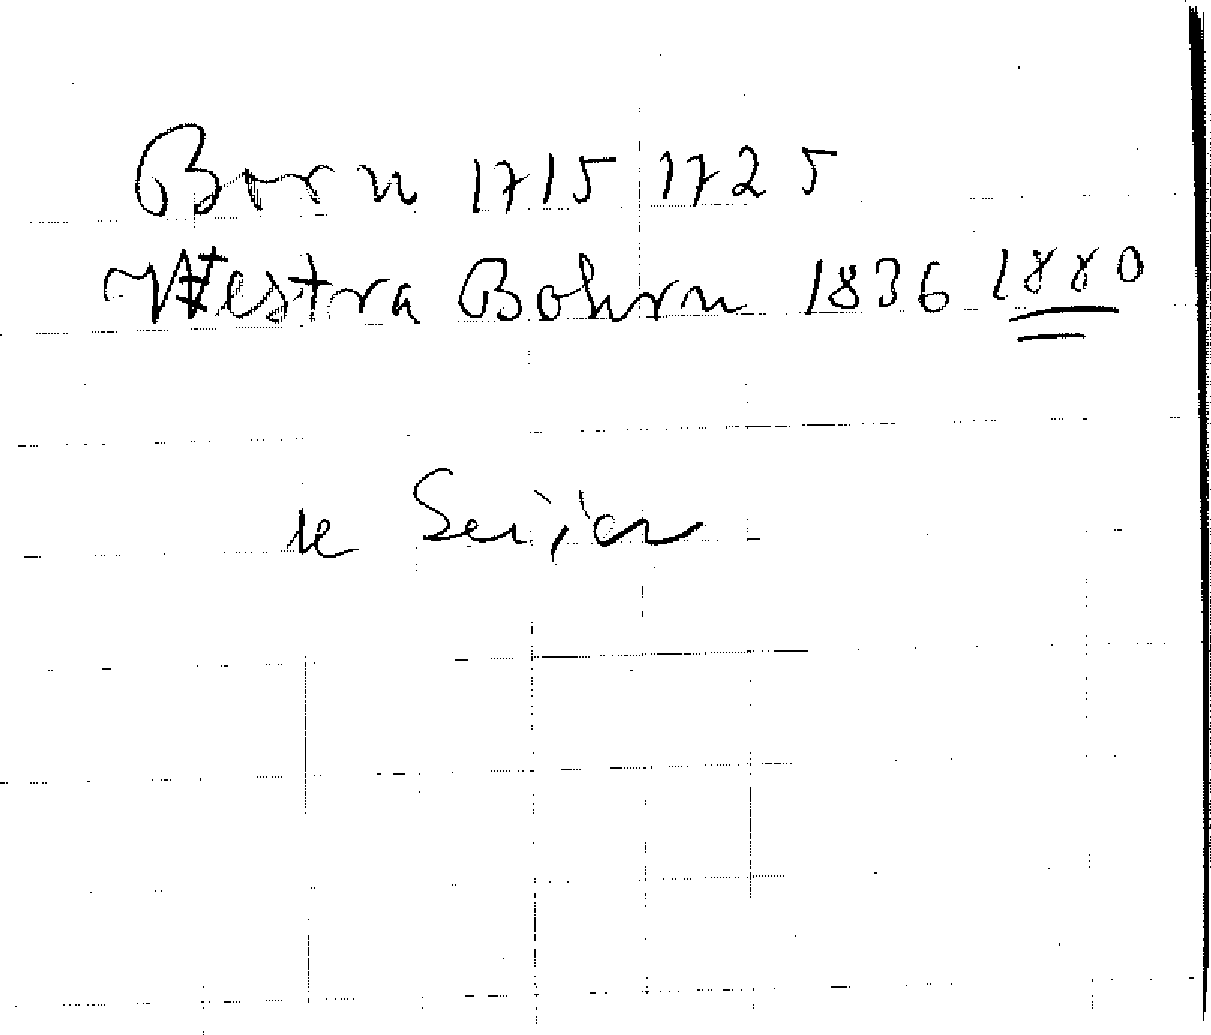 Born 1715 1725
Westra Bohrn 1836 1880
se